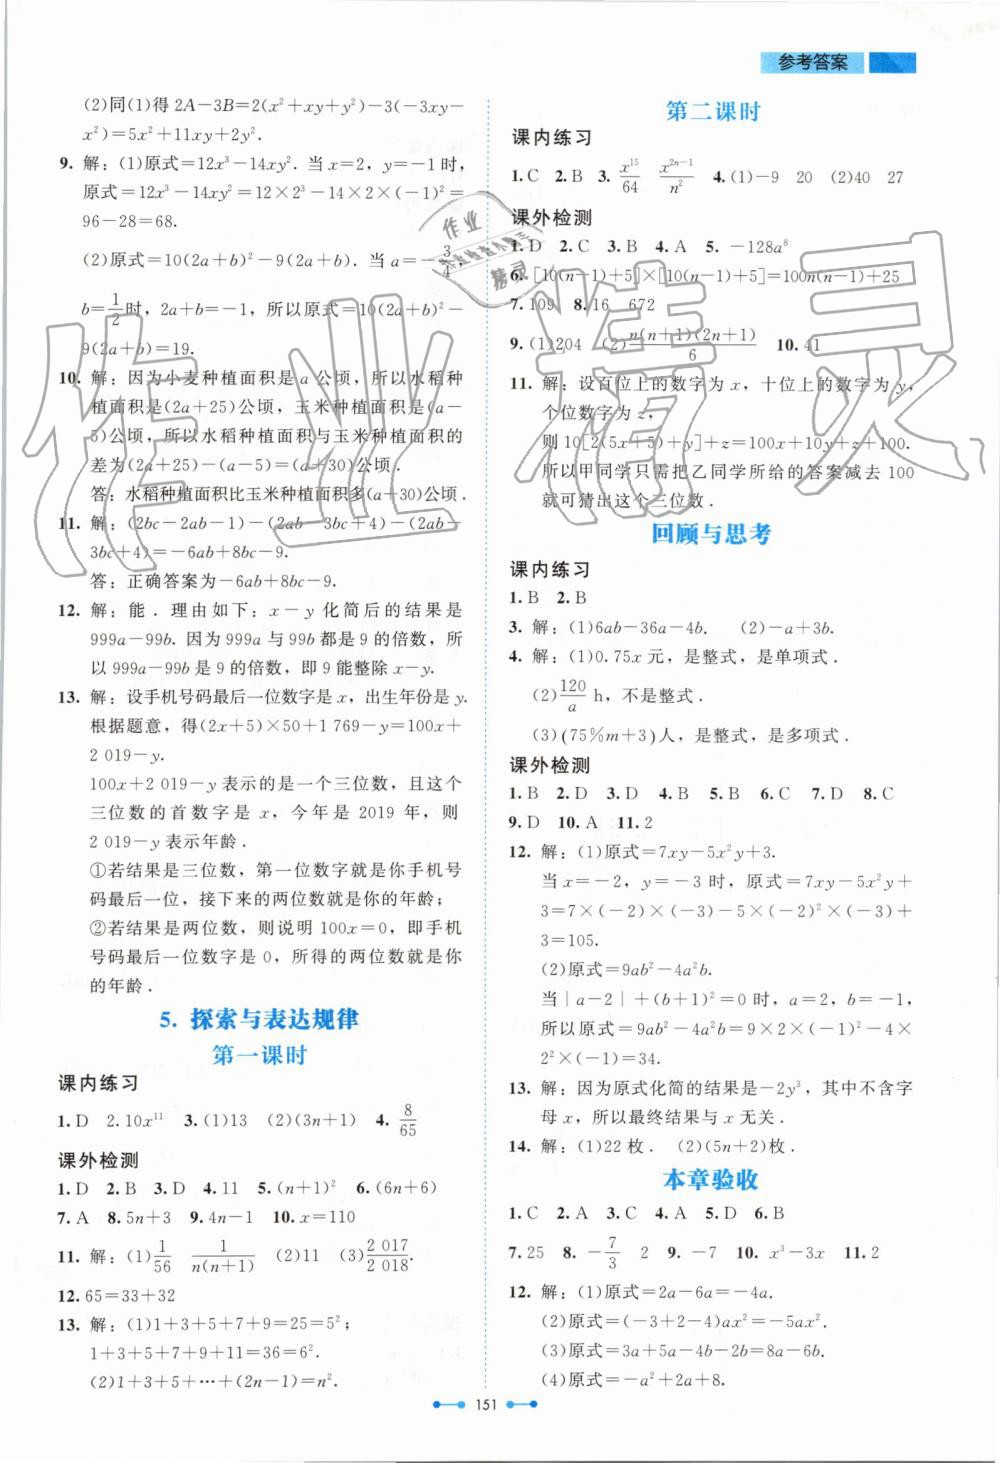 参考答案
(2)同(1)得 2A－3B＝2(x²＋xy＋y²)－3(－3xy－
x²)＝5x²＋11xy＋2y².
9. 解：(1)原式＝12x³－14xy². 当 x＝2，y＝－1 时，
原式＝12x³－14xy²＝12×2³－14×2×(－1)²＝
96－28＝68.
(2)原式＝10(2a＋b)²－9(2a＋b). 当 a＝－3/4，
b＝1/2时，2a＋b＝－1，所以原式＝10(2a＋b)²－
9(2a＋b)＝19.
10. 解：因为小麦种植面积是 a 公顷，所以水稻种
植面积是(2a＋25)公顷，玉米种植面积是(a－
5)公顷，所以水稻种植面积与玉米种植面积的
差为(2a＋25)－(a－5)＝(a＋30)公顷.
答：水稻种植面积比玉米种植面积多(a＋30)公顷.
11. 解：(2bc－2ab－1)－(2ab－3bc＋4)－(2ab－
3bc＋4)＝－6ab＋8bc－9.
答：正确答案为－6ab＋8bc－9.
12. 解：能. 理由如下：x－y 化简后的结果是
999a－99b. 因为 999a 与 99b 都是 9 的倍数，所
以 999a－99b 是 9 的倍数，即 9 能整除 x－y.
13. 解：设手机号码最后一位数字是 x，出生年份是 y.
根据题意，得(2x＋5)×50＋1 769－y＝100x＋
2 019－y.
100x＋2 019－y 表示的是一个三位数，且这个
三位数的首数字是 x，今年是 2019 年，则
2 019－y 表示年龄.
①若结果是三位数，第一位数字就是你手机号
码最后一位，接下来的两位数就是你的年龄；
②若结果是两位数，则说明 100x＝0，即手机
号码最后一位数字是 0，所得的两位数就是你
的年龄.
5. 探索与表达规律
第一课时
课内练习
1. D 2. 10x¹¹ 3. (1)13 (2)(3n＋1) 4. 8/65
课外检测
1. D 2. B 3. D 4. 11 5. (n＋1)² 6. (6n＋6)
7. A 8. 5n＋3 9. 4n－1 10. x＝110
11. 解：(1)1/56 1/n(n＋1) (2)11 (3)2 017/2 018.
12. 65＝33＋32
13. 解：(1)1＋3＋5＋7＋9＝25＝5²；
1＋3＋5＋7＋9＋11＝36＝6².
(2)1＋3＋5＋…＋(2n－1)＝n².
第二课时
课内练习
1. C 2. B 3. x¹⁵/64 x²ⁿ⁻¹/n² 4. (1)－9 20 (2)40 27
课外检测
1. D 2. C 3. B 4. A 5. －128a⁸
6. [10(n－1)＋5]×[10(n－1)＋5]＝100n(n－1)＋25
7. 109 8. 16 672
9. (1)204 (2)n(n＋1)(2n＋1)/6 10. 41
11. 解：设百位上的数字为 x，十位上的数字为 y，
个位数字为 z，
则 10[2(5x＋5)＋y]＋z＝100x＋10y＋z＋100.
所以甲同学只需把乙同学所给的答案减去 100
就可猜出这个三位数.
回顾与思考
课内练习
1. B 2. B
3. 解：(1)6ab－36a－4b. (2)－a＋3b.
4. 解：(1)0.75x 元，是整式，是单项式.
(2)120/a h，不是整式.
(3)(75%m＋3)人，是整式，是多项式.
课外检测
1. B 2. D 3. D 4. B 5. B 6. C 7. D 8. C
9. D 10. A 11. 2
12. 解：(1)原式＝7xy－5x²y＋3.
当 x＝－2，y＝－3 时，原式＝7xy－5x²y＋
3＝7×(－2)×(－3)－5×(－2)²×(－3)＋
3＝105.
(2)原式＝9ab²－4a²b.
当|a－2|＋(b＋1)²＝0 时，a＝2，b＝－1，
所以原式＝9ab²－4a²b＝9×2×(－1)²－4×
2²×(－1)＝34.
13. 解：因为原式化简的结果是－2y³，其中不含字
母 x，所以最终结果与 x 无关.
14. 解：(1)22 枚. (2)(5n＋2)枚.
本章验收
1. C 2. A 3. C 4. A 5. D 6. B
7. 25 8. －7/3 2 9. －7 10. x³－3x 11. 2
12. 解：(1)原式＝2a－6a＝－4a.
(2)原式＝(－3＋2－4)ax²＝－5ax².
(3)原式＝3a＋5a－4b－2b＝8a－6b.
(4)原式＝－a²＋2a＋8.
151
作业精灵